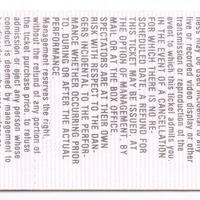 ness may be used incidental to any
live or recorded video display or other
transmission or reproduction of the
event to which this ticket admits you.
IN THE EVENT OF A CANCELLATION
FOR WHICH THERE IS NO RE-
SCHEDULED DATE, A REFUND FOR
THIS TICKET MAY BE ISSUED, AT
THE OPTION OF MANAGEMENT, BY
MAIL OR AT THE BOX OFFICE.
SPECTATORS ARE AT THEIR OWN
RISK WITH RESPECT TO THE DAN-
GERS INCIDENTAL TO THE PERFOR-
MANCE WHETHER OCCURRING PRIOR
TO, DURING OR AFTER THE ACTUAL
PERFORMANCE.
Management reserves the right,
without the refund of any portion of
the ticket purchase price, to refuse
admission or eject any person whose
conduct is deemed by management to